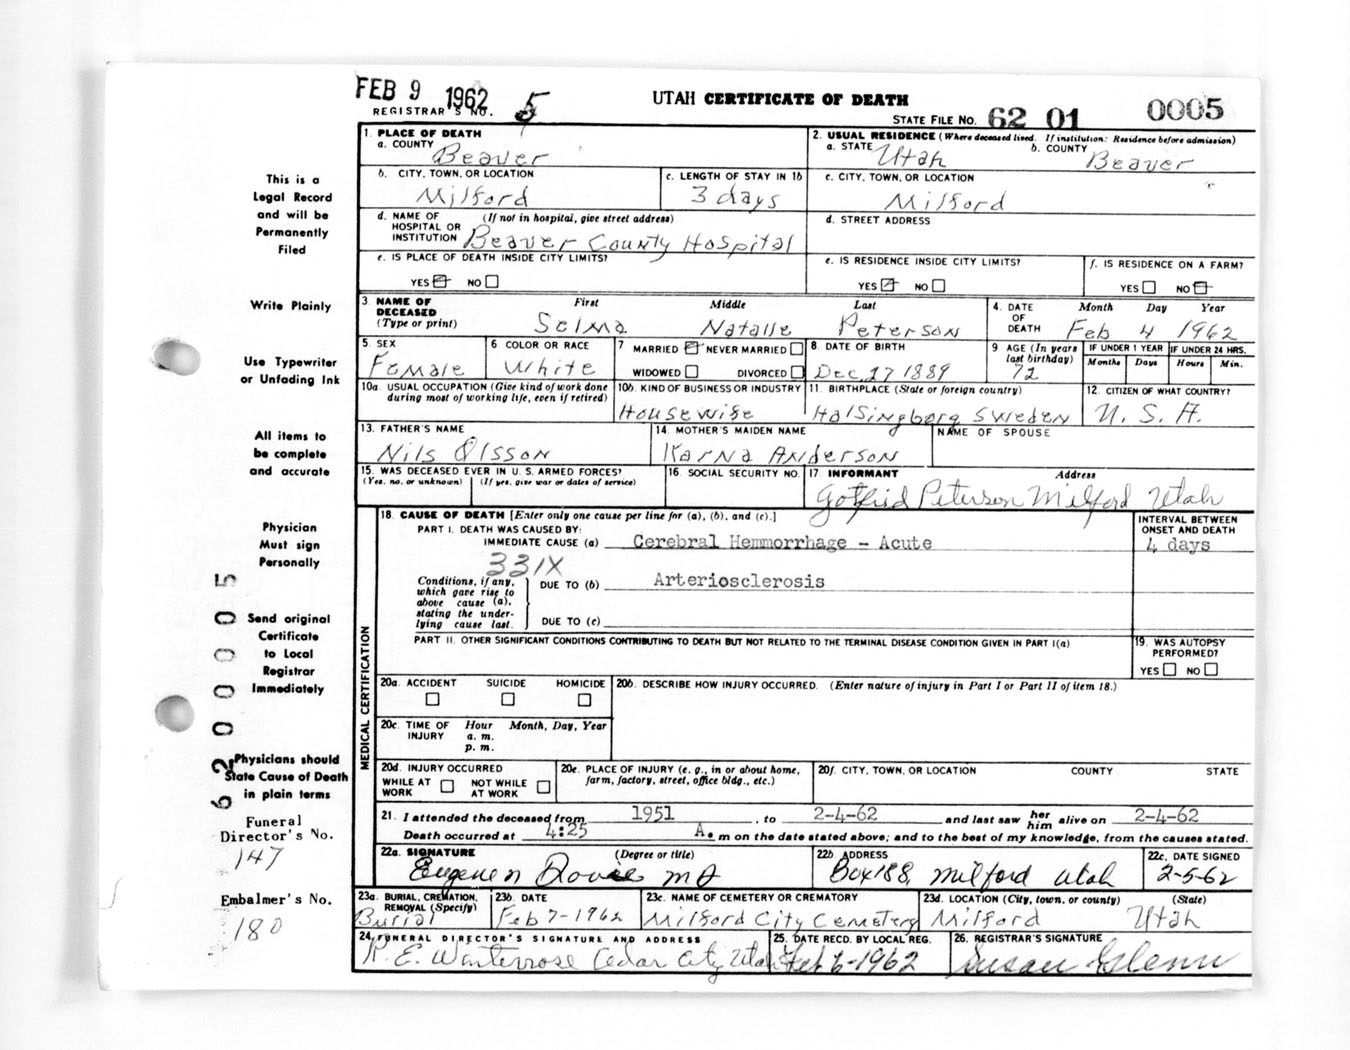 FEB 9 1962 5
REGISTRAR'S NO.
UTAH CERTIFICATE OF DEATH
STATE FILE NO. 62 01 0005
This is a
Legal Record
and will be
Permanently
Filed
Write Plainly
Use Typewriter
or Unfading Ink
All items to
be complete
and accurate
Physician
Must sign
Personally
Send original
Certificate
to Local
Registrar
Immediately
Physicians should
State Cause of Death
in plain terms
Funeral
Director's No.
147
Embalmer's No.
180
62 0 0 0 0 5
1. PLACE OF DEATH
a. COUNTY Beaver
2. USUAL RESIDENCE (Where deceased lived. If institution: Residence before admission)
a. STATE Utah b. COUNTY Beaver
b. CITY, TOWN, OR LOCATION Milford
c. LENGTH OF STAY IN 1b 3 days
c. CITY, TOWN, OR LOCATION Milford
d. NAME OF HOSPITAL OR INSTITUTION (If not in hospital, give street address) Beaver County Hospital
d. STREET ADDRESS
e. IS PLACE OF DEATH INSIDE CITY LIMITS?
YES NO
e. IS RESIDENCE INSIDE CITY LIMITS?
YES NO
f. IS RESIDENCE ON A FARM?
YES NO
3. NAME OF DECEASED (Type or print) First Middle Last
Selma Natalie Peterson
4. DATE OF DEATH Month Day Year
Feb 4 1962
5. SEX Female
6 COLOR OR RACE White
7 MARRIED NEVER MARRIED
WIDOWED DIVORCED
8. DATE OF BIRTH Dec 27 1889
9 AGE (In years last birthday) 72
IF UNDER 1 YEAR Months Days
IF UNDER 24 HRS. Hours Min.
10a. USUAL OCCUPATION (Give kind of work done during most of working life, even if retired)
10b. KIND OF BUSINESS OR INDUSTRY Housewife
11. BIRTHPLACE (State or foreign country) Halsingborg Sweden
12. CITIZEN OF WHAT COUNTRY? U. S. A.
13. FATHER'S NAME Nils Olsson
14. MOTHER'S MAIDEN NAME Karna Anderson
NAME OF SPOUSE
15. WAS DECEASED EVER IN U. S. ARMED FORCES?
(Yes, no, or unknown) (If yes, give war or dates of service)
16. SOCIAL SECURITY NO.
17. INFORMANT Address
Gotfrid Peterson Milford Utah
MEDICAL CERTIFICATION
18. CAUSE OF DEATH [Enter only one cause per line for (a), (b), and (c).]
INTERVAL BETWEEN ONSET AND DEATH
PART I. DEATH WAS CAUSED BY:
IMMEDIATE CAUSE (a) Cerebral Hemmorrhage - Acute 4 days
331X
Conditions, if any, which gave rise to above cause (a), stating the underlying cause last.
DUE TO (b) Arteriosclerosis
DUE TO (c)
PART II. OTHER SIGNIFICANT CONDITIONS CONTRIBUTING TO DEATH BUT NOT RELATED TO THE TERMINAL DISEASE CONDITION GIVEN IN PART I(a)
19. WAS AUTOPSY PERFORMED?
YES NO
20a. ACCIDENT SUICIDE HOMICIDE
20b. DESCRIBE HOW INJURY OCCURRED. (Enter nature of injury in Part I or Part II of item 18.)
20c. TIME OF INJURY Hour Month, Day, Year
a. m.
p. m.
20d. INJURY OCCURRED
WHILE AT WORK NOT WHILE AT WORK
20e. PLACE OF INJURY (e. g., in or about home, farm, factory, street, office bldg., etc.)
20f. CITY, TOWN, OR LOCATION COUNTY STATE
21. I attended the deceased from 1951, to 2-4-62 and last saw her him alive on 2-4-62
Death occurred at 4:25 A. m on the date stated above; and to the best of my knowledge, from the causes stated.
22a. SIGNATURE (Degree or title)
MD
22b. ADDRESS Box 188, Milford Utah
22c. DATE SIGNED 2-5-62
23a. BURIAL, CREMATION, REMOVAL (Specify) Burial
23b. DATE Feb 7-1962
23c. NAME OF CEMETERY OR CREMATORY Milford City Cemetery
23d. LOCATION (City, town, or county) (State)
Milford Utah
24. FUNERAL DIRECTOR'S SIGNATURE AND ADDRESS
Cedar City Utah
25. DATE RECD. BY LOCAL REG. Feb 6-1962
26. REGISTRAR'S SIGNATURE
Susan Glenn